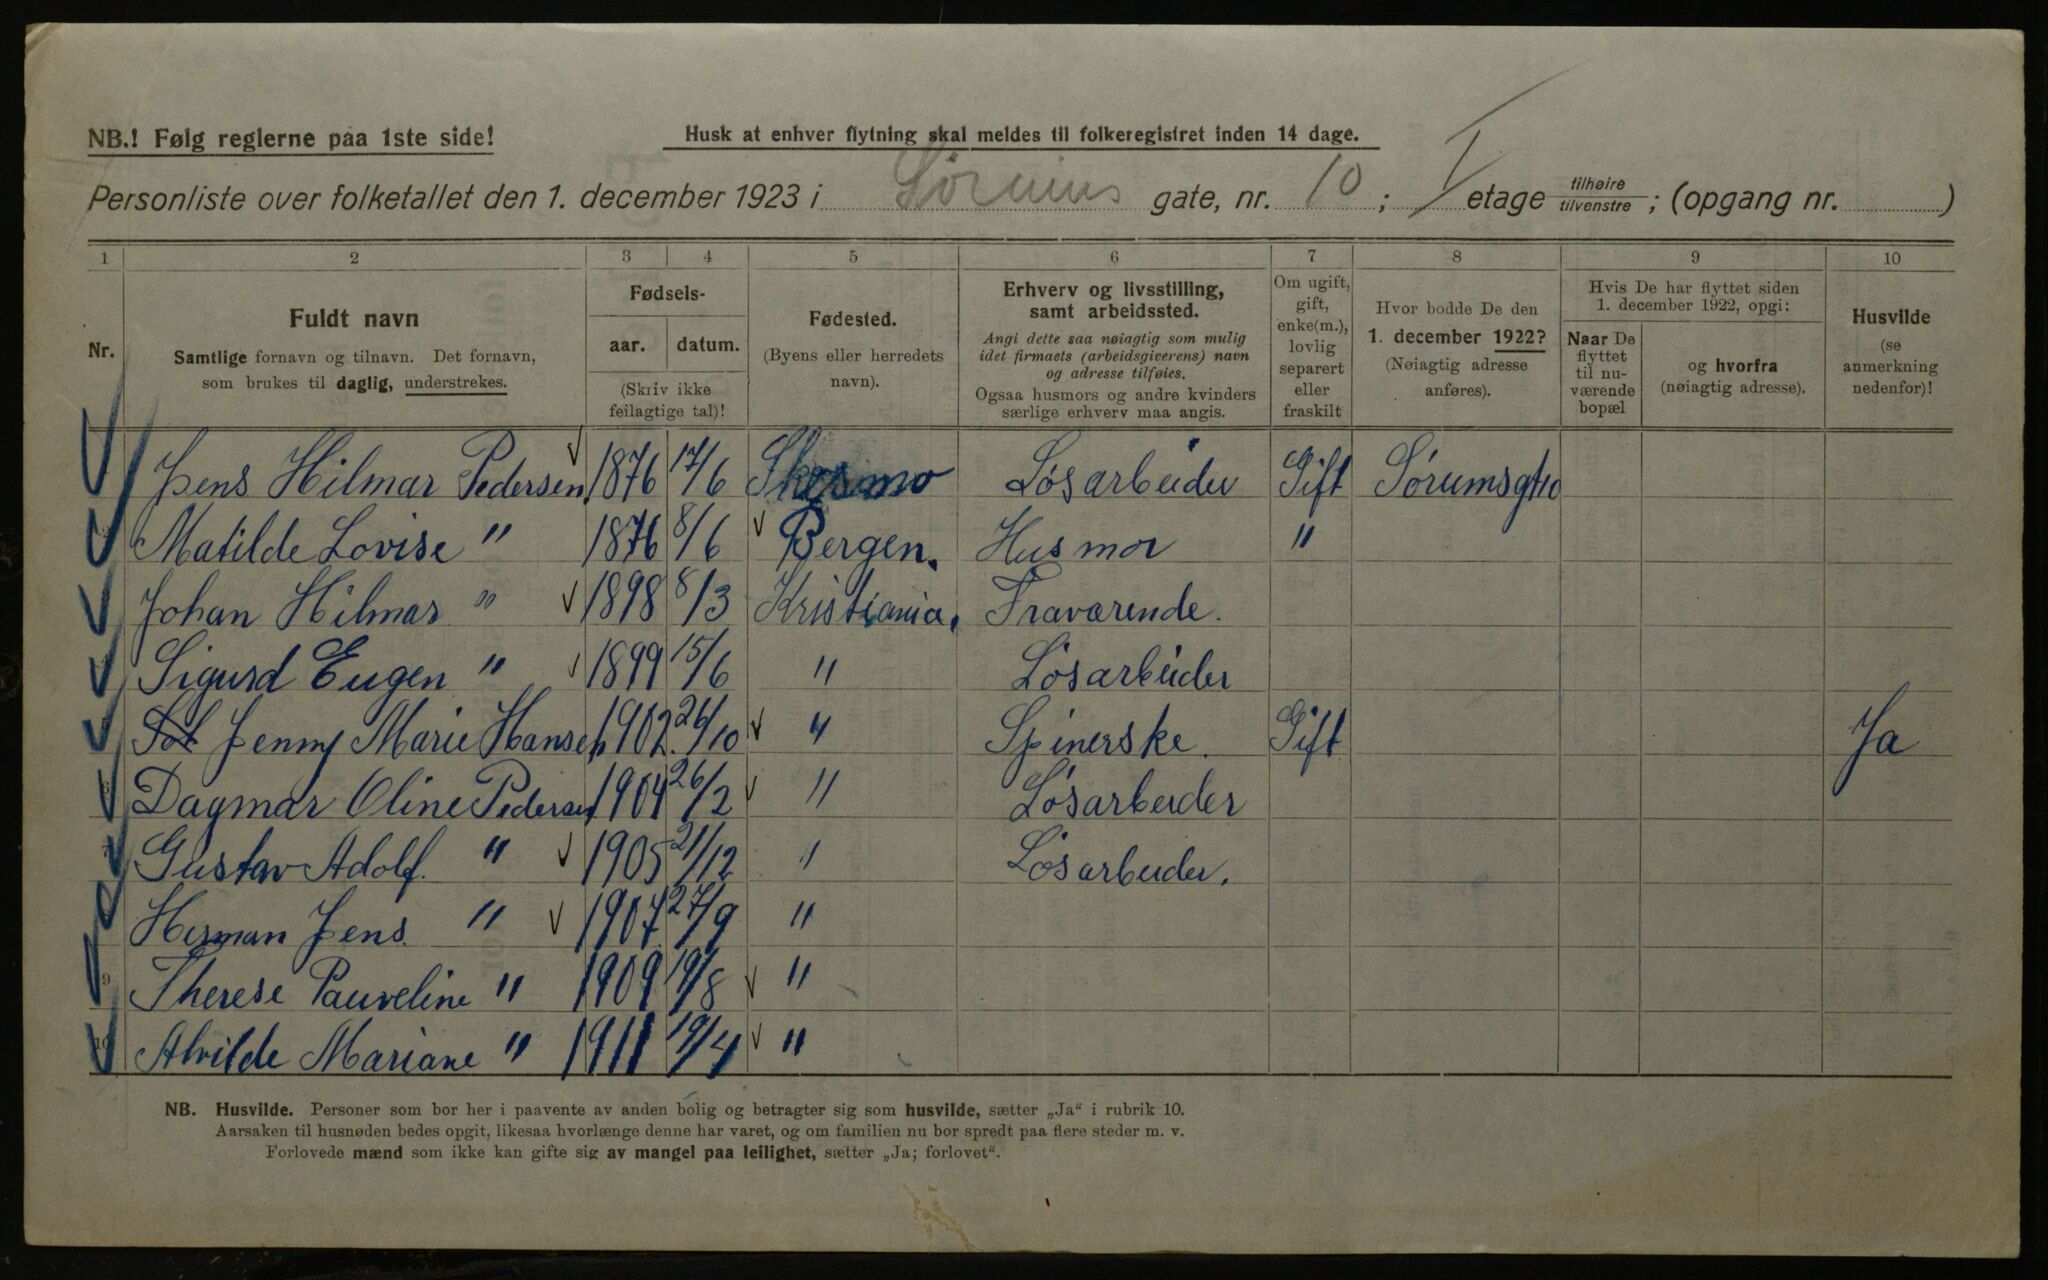 NB.! Følg reglerne paa 1ste side!
Husk at enhver flytning skal meldes til folkeregistret inden 14 dage.
Personliste over folketallet den 1. december 1923 i Sørums gate, nr. 10 ; I etage tilhøire tilvenstre ; (opgang nr. )
1 2 3 4 5 6 7 8 9 10
Nr.
Fuldt navn
Samtlige fornavn og tilnavn. Det fornavn,
som brukes til daglig, understrekes.
Fødsels-
aar. datum.
(Skriv ikke
feilagtige tal)!
Fødested.
(Byens eller herredets
navn).
Erhverv og livsstilling,
samt arbeidssted.
Angi dette saa nøiagtig som mulig
idet firmaets (arbeidsgiverens) navn
og adresse tilføies.
Ogsaa husmors og andre kvinders
særlige erhverv maa angis.
Om ugift,
gift,
enke(m.),
lovlig
separert
eller
fraskilt
Hvor bodde De den
1. december 1922?
(Nøiagtig adresse
anføres).
Hvis De har flyttet siden
1. december 1922, opgi:
Naar De
flyttet
til nu-
værende
bopæl
og hvorfra
(nøiagtig adresse).
Husvilde
(se
anmerkning
nedenfor)!
Jens Hilmar Pedersen 1876 17/6 Skesmo Løsarbeider Gift Sørumsgt10
Matilde Lovise " 1876 8/6 Bergen. Husmor "
Johan Hilmar " 1898 8/3 Kristiania. Fraværende.
Sigurd Eugen " 1899 15/6 " Løsarbeider
Jenny Marie Hansen 1902. 26/10 " Spinerske. Gift Ja
6 Dagmar Oline Pedersen 1904 26/2 " Løsarbeider
7 Gustav Adolf. " 1905 21/12 " Løsarbeider.
Herman Jens. " 1907. 27/9 "
9 Therese Pauveline " 1909 19/8 "
10 Alvilde Mariane " 1911 19/4 "
NB. Husvilde. Personer som bor her i paavente av anden bolig og betragter sig som husvilde, sætter „Ja“ i rubrik 10.
Aarsaken til husnøden bedes opgit, likesaa hvorlænge denne har varet, og om familien nu bor spredt paa flere steder m. v.
Forlovede mænd som ikke kan gifte sig av mangel paa leilighet, sætter „Ja; forlovet“.